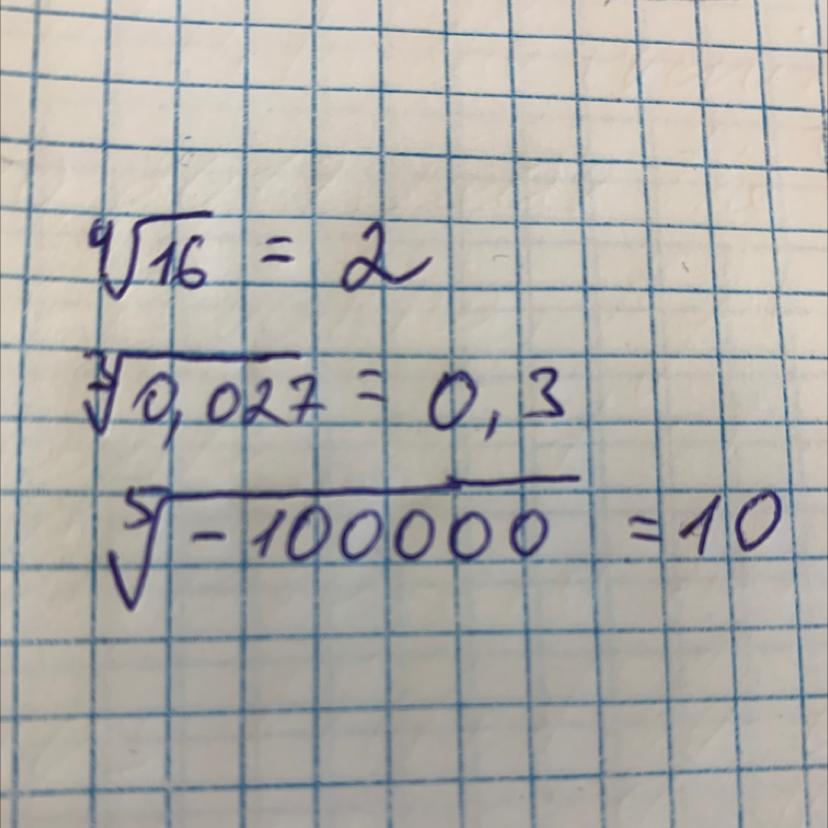 ⁴√16 = 2
³√0,027 = 0,3
⁵√-100000 = 10